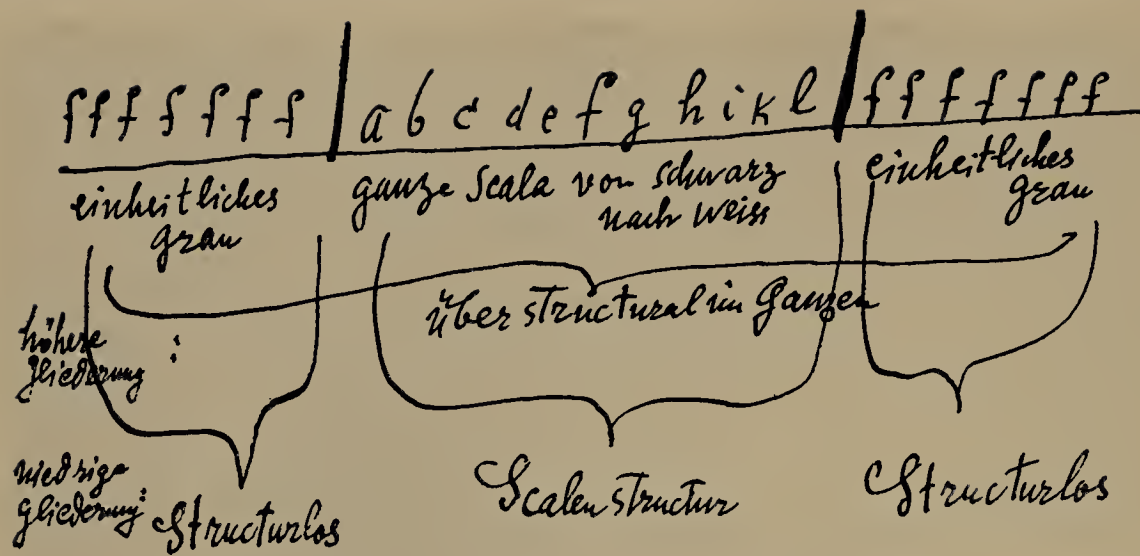 f f f f f f f | a b c d e f g h i k l | f f f f f f f
einheitliches
grau
ganze Scala von schwarz
nach weiss
einheitliches
grau
über structural im Ganzen
höhere
gliederung :
niedrige
gliederung: Structurlos
Scalenstructur
Structurlos